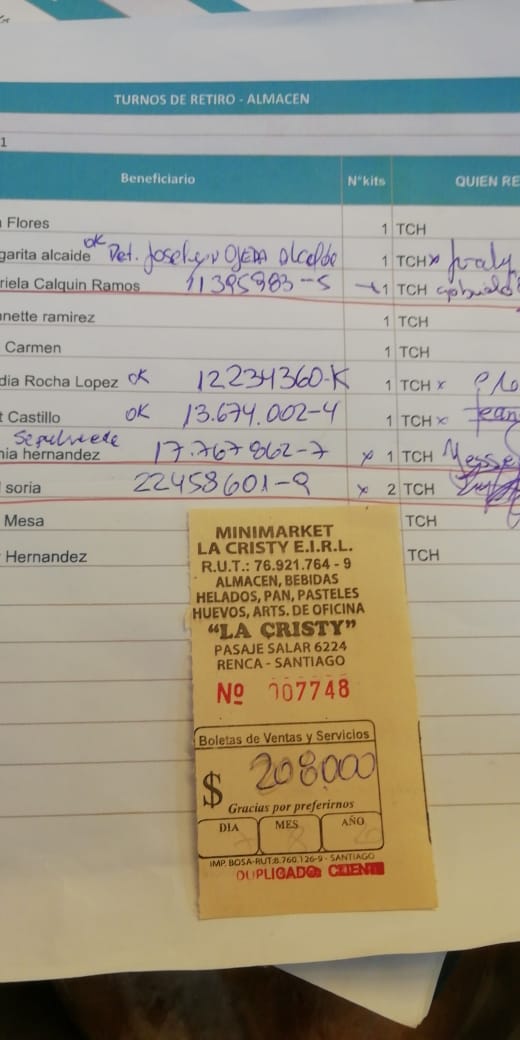 TURNOS DE RETIRO - ALMACEN
1
Beneficiario N°kits QUIEN RE
Flores 1 TCH
garita alcaide ok Ret. Joselyn OJEDA Alcalde 1 TCH x
riela Calquin Ramos 11395983-5 1 TCH
nnette ramirez 1 TCH
Carmen 1 TCH
dia Rocha Lopez ok 12234360-K 1 TCH x
t Castillo ok 13.674.002-4 1 TCH x Jean
Sepulveda
nia hernandez 17.767862-7 x 1 TCH
soria 22458601-9 x 2 TCH
Mesa TCH
Hernandez TCH
MINIMARKET
LA CRISTY E.I.R.L.
R.U.T.: 76.921.764 - 9
ALMACEN, BEBIDAS
HELADOS, PAN, PASTELES
HUEVOS, ARTS. DE OFICINA
“LA CRISTY”
PASAJE SALAR 6224
RENCA - SANTIAGO
Nº 007748
Boletas de Ventas y Servicios
$ 208.000
Gracias por preferirnos
DIA MES AÑO
IMP. BOSA-RUT:8.760.126-9 - SANTIAGO
DUPLICADO: CLIENTE